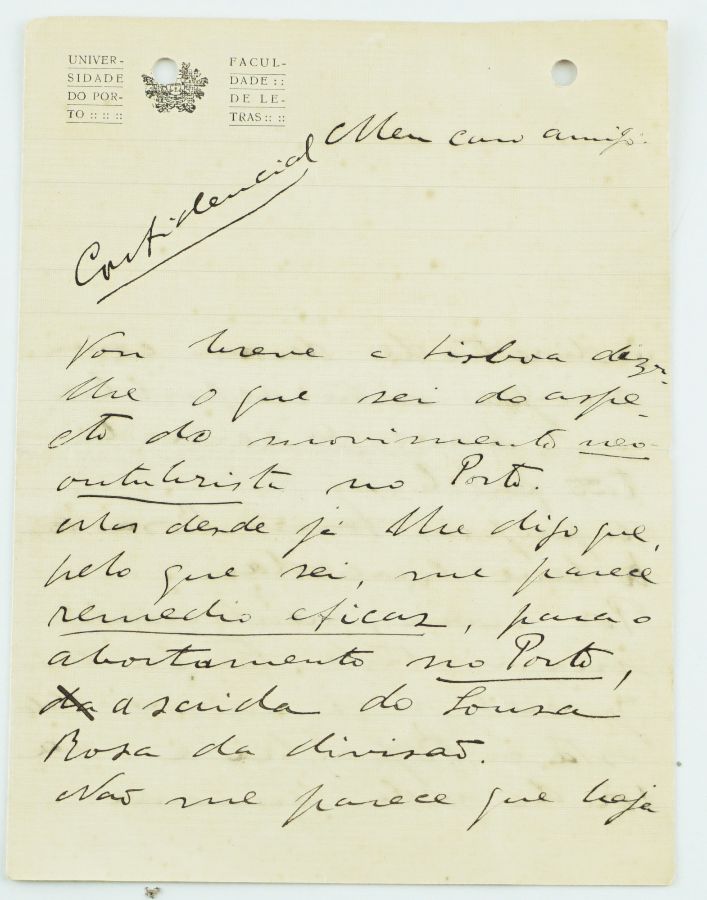 UNIVER-
SIDADE
DO POR-
TO :: :: ::
FACUL-
DADE ::
DE LE-
TRAS :: ::
Confidencial
Meu caro amigo:
Vou breve a Lisboa dizer-
lhe o que sei do aspe-
cto do movimento neo-
outubrista no Porto.
Mas desde já lhe digo que,
pelo que sei, me parece
remedio eficaz, para o
abortamento no Porto,
da a saida do Sousa
Rosa da divisão.
Não me parece que haja